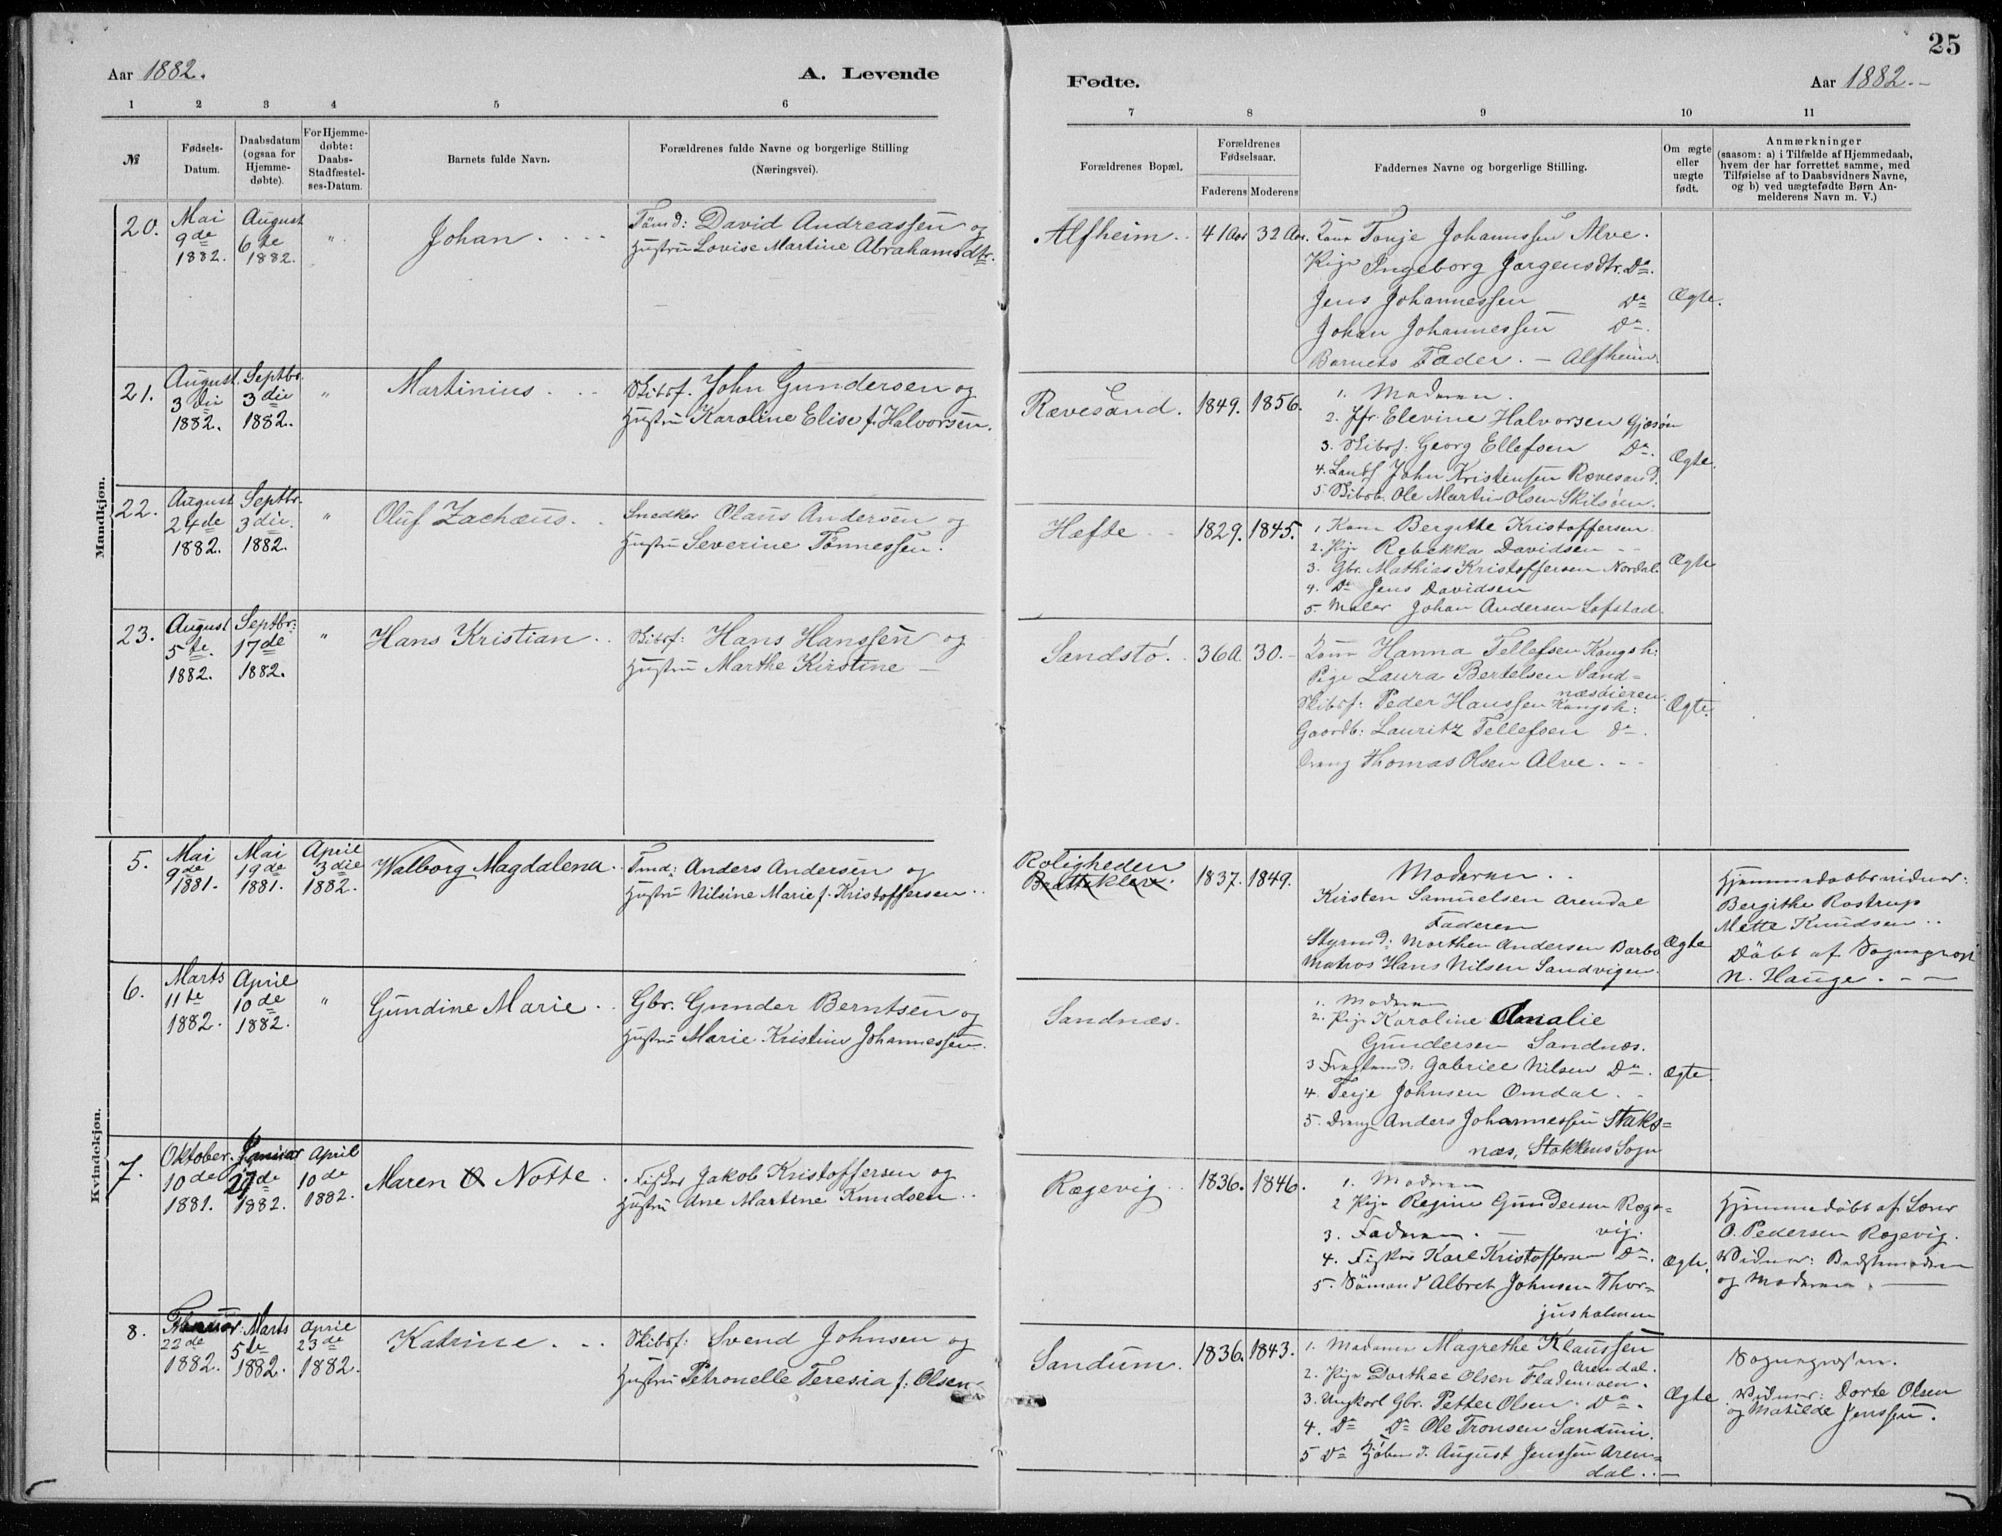 25
Aar 1882.
A. Levende
Fødte.
Aar 1882.
1 2 3 4 5 6 7 8 9 10 11
№
Fødsels-
Datum.
Daabsdatum
(ogsaa for
Hjemme-
døbte).
For Hjemme-
døbte:
Daabs-
Stadfæstel-
ses-Datum.
Barnets fulde Navn.
Forældrenes fulde Navne og borgerlige Stilling
(Næringsvei).
Forældrenes Bopæl.
Forældrenes
Fødselsaar.
Faderens Moderens
Faddernes Navne og borgerlige Stilling.
Om ægte
eller
uægte
født.
Anmærkninger
(saasom: a) i Tilfælde af Hjemmedaab,
hvem der har forrettet samme, med
Tilføielse af to Daabsvidners Navne,
og b) ved uægtefødte Børn An-
melderens Navn m. V.)
Mandkjøn.
20.
Mai
9de
1882.
August
6te
1882.
"
Johan
Tømd: David Andreassen og
Hustru Lovise Martine Abrahamsdtr.
Alfheim
41 Aar 32 Aar.
Kone Tonje Johannssen Alve.
Pige Ingeborg Jørgensdtr. Do.
Jens Johannessen Do
Johan Johannessen Do.
Barnets Fader. — Alfheim
Ægte.
21.
August
3die
1882.
Septbr.
3die
1882.
"
Martinius
Skibsf. John Gundersen og
Hustru Karoline Elise f. Halvorsen.
Rævesand.
1849. 1856.
1. Moderen.
2. Jfr Elevine Halvorsen Gjæsøen
3. Skibsf. Georg Ellefsen Do.
4. John Kristensen Rævesand.
5. Ole Martin Olsen Skilsøen.
Ægte.
22.
August
24de
1882.
Septbr.
3die.
1882.
"
Oluf Zachæus
Snedker Olaus Andersen og
Hustru Severine Tønnessen.
Hæfte
1829. 1845.
1. Kone Bergitte Kristoffersen
2. Pige Rebekka Davidsen
3. Gbr. Mathias Kristoffersen Nordal.
4. Do Jens Davidsen
5 Maler Johan Andersen Lofstad.
Ægte
23.
August
5te.
1882.
Septbr:
17de
1882.
"
Hans Kristian
Skibsf: Hans Hanssen og
Hustru Marthe Kirstine —
Sandstø.
36 A. 30.
Kone Hanna Tellefsen Kongsh:
Pige Laura Bertelsen Sand=
næsøieren.
Skibsf: Peder Hanssen Kongsh:
Gaardb: Lauritz Tellefsen do.
Dreng Thomas Olsen Alve.
Ægte.
Kvindekjøn.
5.
Mai
9de
1881.
Mai
19de
1881.
April
3die
1882.
Walborg Magdalena
Tmd: Anders Andersen og
Hustru Nilsine Marie f. Kristoffersen
Roligheden
Brattekleiv.
1837. 1849.
Moderen
Kirsten Samuelsen Arendal
Faderen
Styrmd: Morthen Andersen Barbo
Matros Hans Nilsen Sandvigen.
Ægte
Hjemmedaabsvidner:
Bergithe Rostrup
Mette Knudsen
Døbt af Sognepræst
N. Hauge.
6.
Marts
11te
1882.
April
10de
1882.
"
Gundine Marie
Gbr. Gunder Berntsen og
Hustru Marie Kristine Johannessen.
Sandnæs.
1. Moderen
2. Pige Karoline Amalie
Gundersen Sandnæs.
3 Gabriel Nilsen Do.
4. Terje Johnsen Omdal
5. Dreng Anders Johannessen Staks=
næs, Stokkens Sogn
Ægte.
7.
Oktober
10de
1881.
Januar
27de
1882.
April
10de
1882.
Maren O Notte
Fisker Jakob Kristoffersen og
Hustru Ane Martine Knudsen
Rægevig
1836. 1846.
1. Moderen
2 Pige Regine Gundersen Ræge=
vig.
3. Faderen.
4. Fisker Karl Kristoffersen Do.
5. Sømand Albret Johnsen Thor=
jusholmen
Ægte.
Hjemmedøbt af Lærer
O. Pedersen Rægevig.
Vidner:
og Moderen.
8.
Februar:
22de
1882.
Marts
5te
1882.
April
23de
1882.
Katrine
Skibsf: Svend Johnsen og
Hustru Petronelle Teresia f: Olsen
Sandum.
1836. 1843.
1. Madame Magrethe Klaussen
Arendal.
2. Pige Dorthee Olsen Flademoen.
3. Ungkarl Gbr. Petter Olsen. Do.
4. Do Do Ole Tronsen Sandum.
5 Do Kjøbmd. August Jenssen Aren=
dal.
Ægte
Sognepræsten.
Vidner: Dorte Olsen
og Matilde Jenssen.